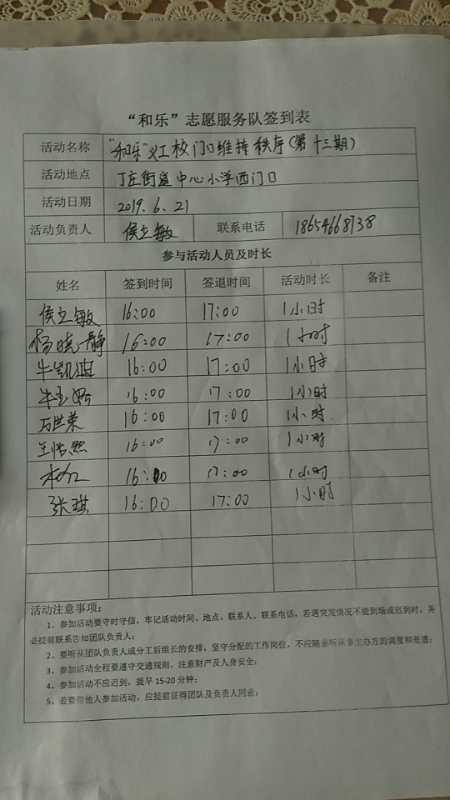 “和乐”志愿服务队签到表
活动名称 “和乐”义工校门口维持秩序(第十三期)
活动地点 丁庄街道中心小学西门口
活动日期 2019.6.21
活动负责人 侯立敏 联系电话 18654668738
参与活动人员及时长
姓名 签到时间 签退时间 活动时长 备注
侯立敏 16:00 17:00 1小时
杨晓静 16:00 17:00 1小时
牛凯迪 16:00 17:00 1小时
16:00 17:00 1小时
万世荣 16:00 17:00 1小时
王浩然 16:00 17:00 1小时
16:00 17:00 1小时
张琪 16:00 17:00 1小时
活动注意事项:
1、参加活动要守时守信,牢记活动时间、地点、联系人、联系电话,若遇突发情况不能到场或迟到时,务
必提前联系告知团队负责人;
2、要听从团队负责人或分工后组长的安排,坚守分配的工作岗位,不应随意听从参主办方的调度和差遣;
3、参加活动全程要遵守交通规则,注意财产及人身安全;
4、参加活动不应迟到,提早15-20分钟;
5、若要带他人参加活动,应提前征得团队及负责人同意;